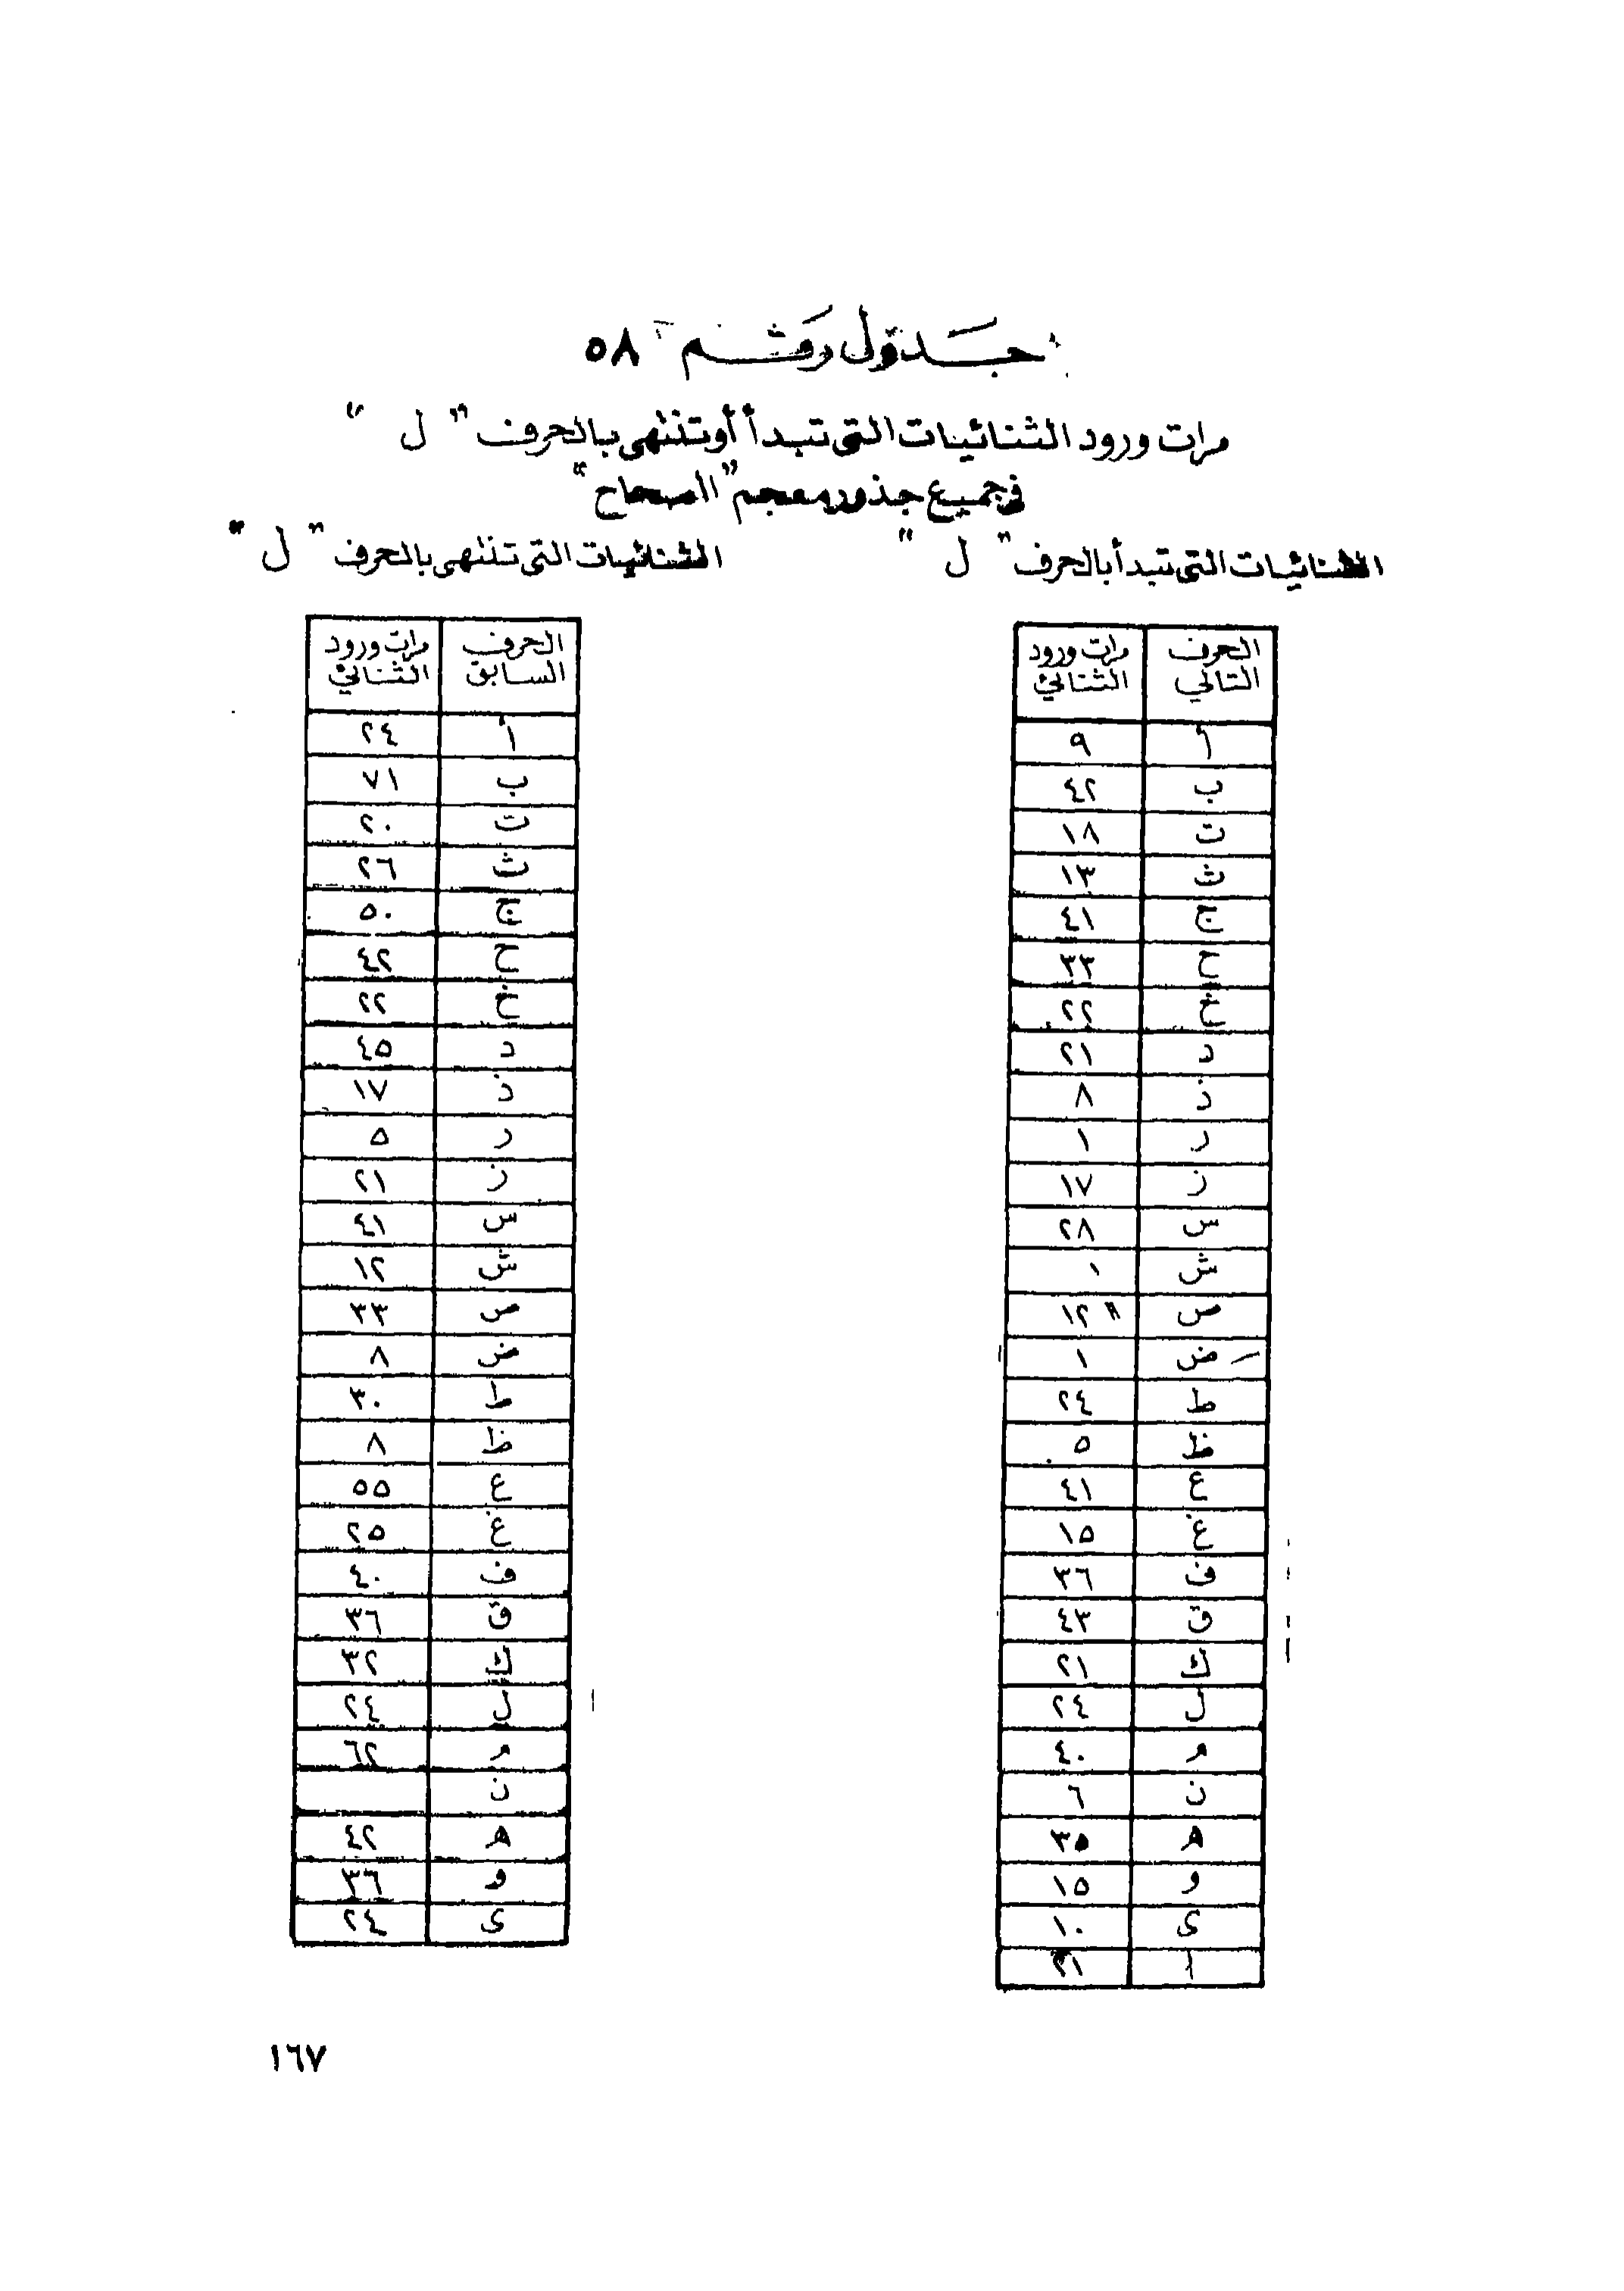 جدول رقم ٥٨
مرات ورود الثنائيات التى تبدأ أو تنتهى بالحرف " ل "
فى جميع جذور معجم "الصحاح"
الثنائيات التى تبدأ بالحرف " ل "
الحرف التالي | مرات ورود الثنائي
أ | ٩
ب | ٤٢
ت | ١٨
ث | ١٣
ج | ٤١
ح | ٣٣
خ | ٢٢
د | ٢١
ذ | ٨
ر | ١
ز | ١٧
س | ٢٨
ش | ١
ص | ١٢
ض | ١
ط | ٢٤
ظ | ٥
ع | ٤١
غ | ١٥
ف | ٣٦
ق | ٤٣
ك | ٢١
ل | ٢٤
م | ٤٠
ن | ٦
ه | ٣٥
و | ١٥
ى | ١٠
ا
الثنائيات التى تنتهى بالحرف " ل "
الحرف السابق | مرات ورود الثنائي
أ | ٢٤
ب | ٧١
ت | ٢٠
ث | ٢٦
ج | ٥٠
ح | ٤٢
خ | ٢٢
د | ٤٥
ذ | ١٧
ر | ٥
ز | ٢١
س | ٤١
ش | ١٢
ص | ٣٣
ض | ٨
ط | ٣٠
ظ | ٨
ع | ٥٥
غ | ٢٥
ف | ٤٠
ق | ٣٦
ك | ٣٢
ل | ٢٤
م | ٦٢
ن
ه | ٤٢
و | ٣٦
ى | ٢٤
١٦٧